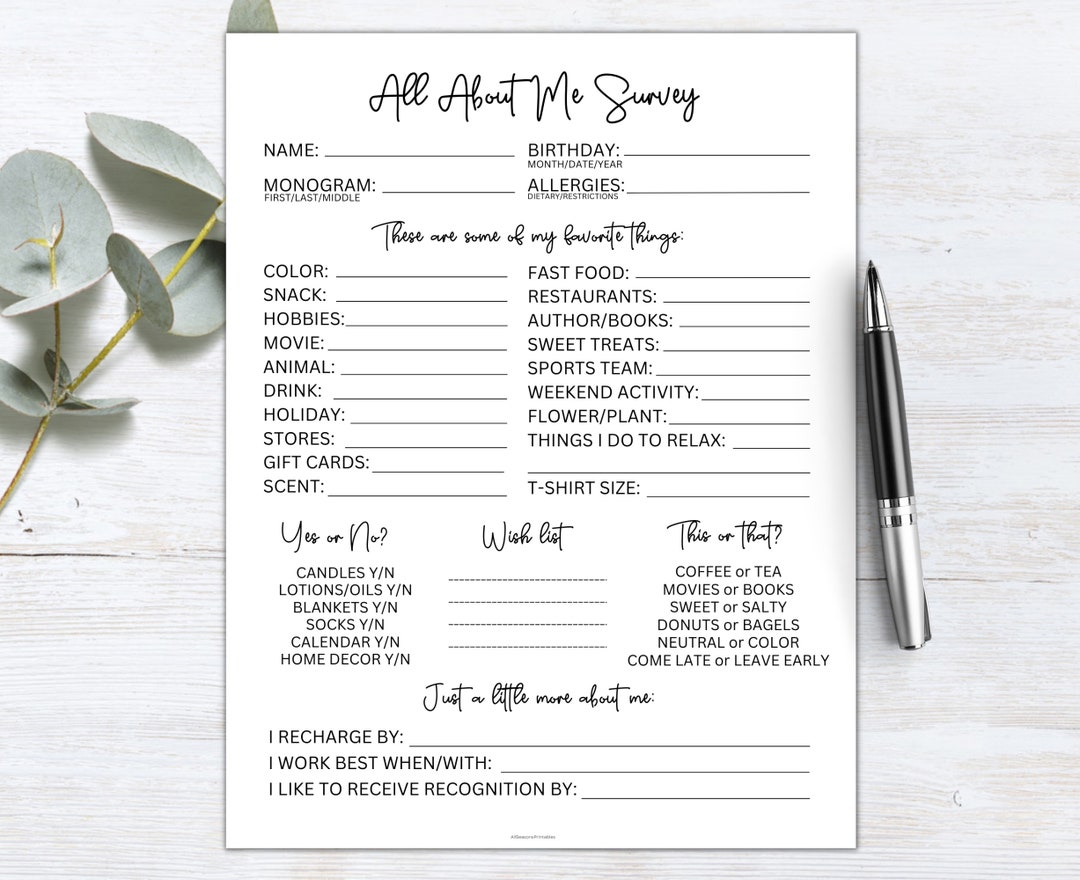 All About Me Survey
NAME:
BIRTHDAY:
MONTH/DATE/YEAR
MONOGRAM:
FIRST/LAST/MIDDLE
ALLERGIES:
DIETARY/RESTRICTIONS
These are some of my favorite things:
COLOR:
SNACK:
HOBBIES:
MOVIE:
ANIMAL:
DRINK:
HOLIDAY:
STORES:
GIFT CARDS:
SCENT:
FAST FOOD:
RESTAURANTS:
AUTHOR/BOOKS:
SWEET TREATS:
SPORTS TEAM:
WEEKEND ACTIVITY:
FLOWER/PLANT:
THINGS I DO TO RELAX:
T-SHIRT SIZE:
Yes or No?
CANDLES Y/N
LOTIONS/OILS Y/N
BLANKETS Y/N
SOCKS Y/N
CALENDAR Y/N
HOME DECOR Y/N
Wish list
This or that?
COFFEE or TEA
MOVIES or BOOKS
SWEET or SALTY
DONUTS or BAGELS
NEUTRAL or COLOR
COME LATE or LEAVE EARLY
Just a little more about me:
I RECHARGE BY:
I WORK BEST WHEN/WITH:
I LIKE TO RECEIVE RECOGNITION BY: